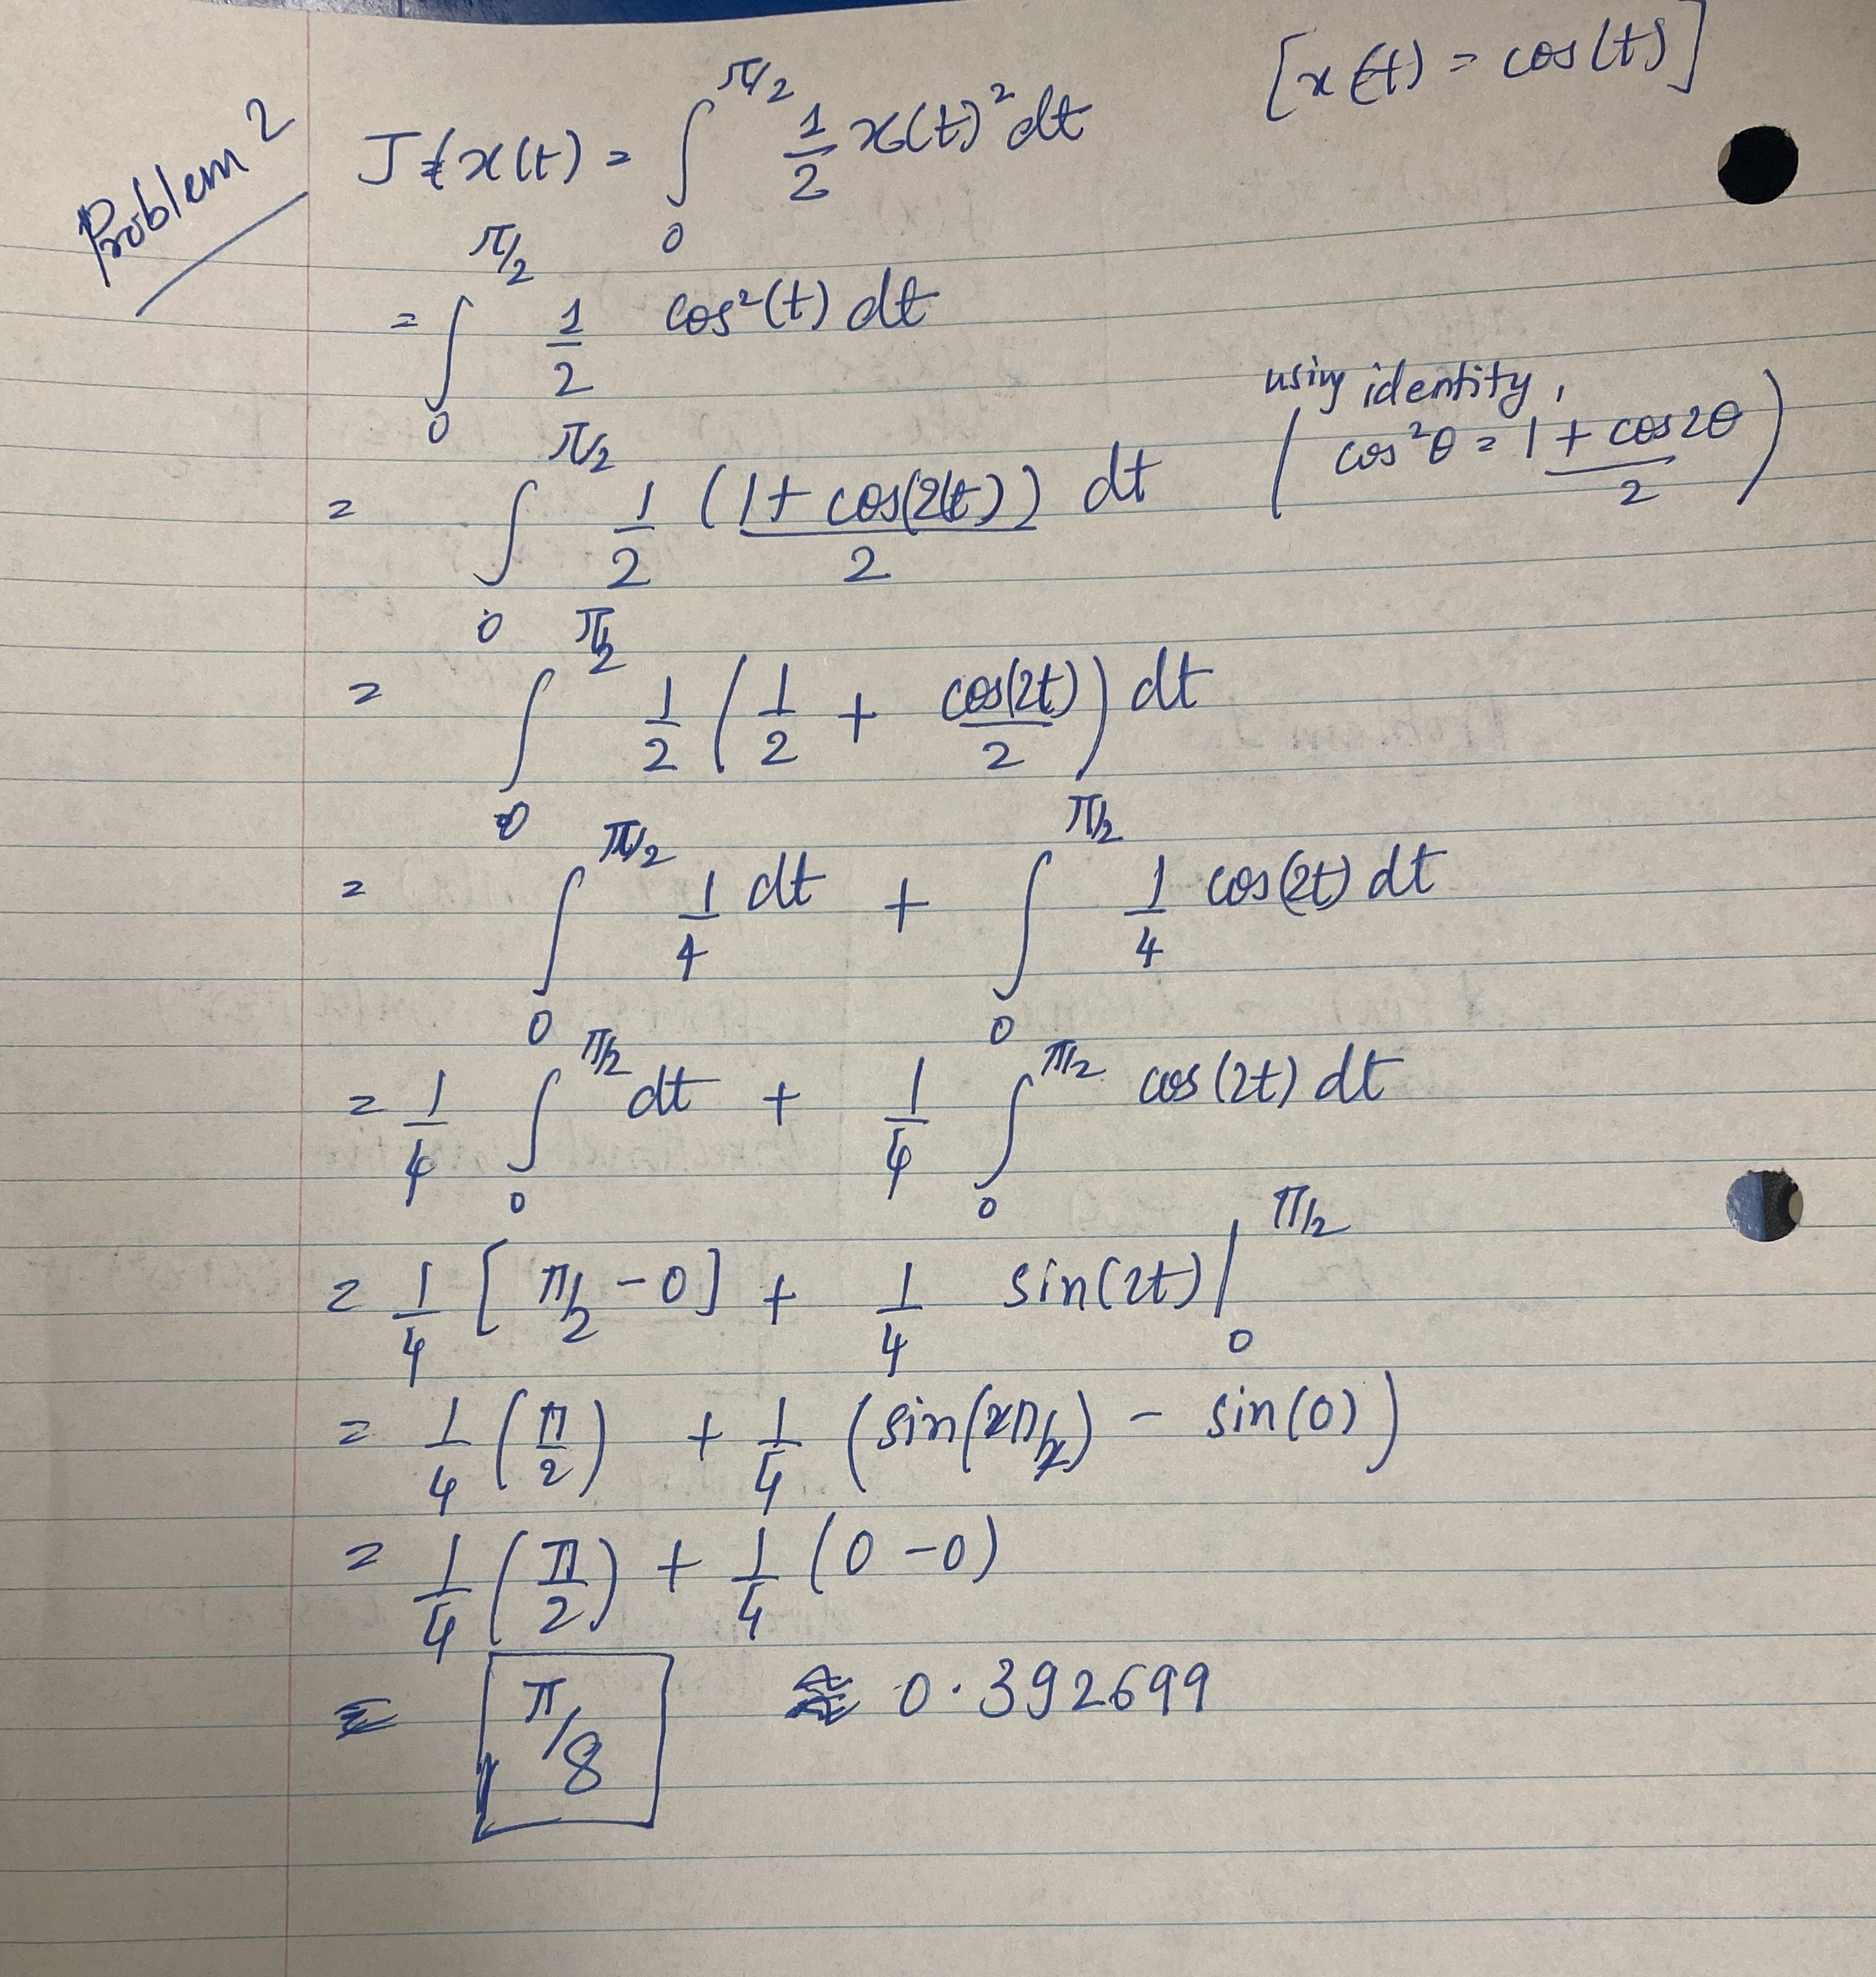 Problem 2
J{x(t) = ∫₀^{π/2} 1/2 x(t)² dt [x(t) = cos(t)]
= ∫₀^{π/2} 1/2 cos²(t) dt
using identity,
= ∫₀^{π/2} 1/2 (1 + cos(2t))/2 dt (cos²θ = (1 + cos2θ)/2)
= ∫₀^{π/2} 1/2 (1/2 + cos(2t)/2) dt
= ∫₀^{π/2} 1/4 dt + ∫₀^{π/2} 1/4 cos(2t) dt
= 1/4 ∫₀^{π/2} dt + 1/4 ∫₀^{π/2} cos(2t) dt
= 1/4 [π/2 - 0] + 1/4 sin(2t) |₀^{π/2}
= 1/4 (π/2) + 1/4 (sin(2π/2) - sin(0))
= 1/4 (π/2) + 1/4 (0 - 0)
= π/8 ≈ 0.392699